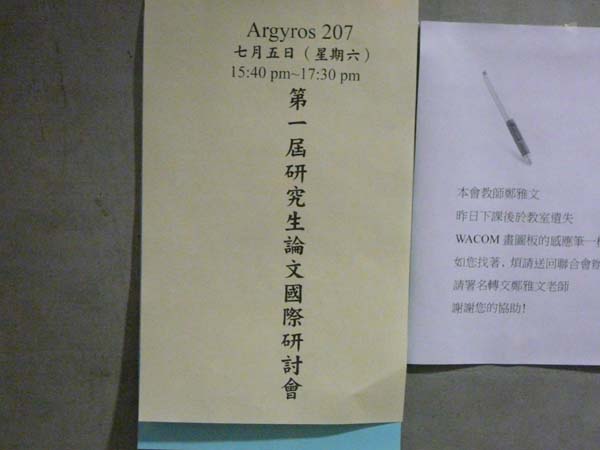 Argyros 207
七月五日（星期六）
15:40 pm~17:30 pm
第一屆研究生論文國際研討會
本會教師鄭雅文
昨日下課後於教室遺失
WACOM 畫圖板的感應筆一
如您找著，煩請送回聯合會辦
請署名轉交鄭雅文老師
謝謝您的協助!